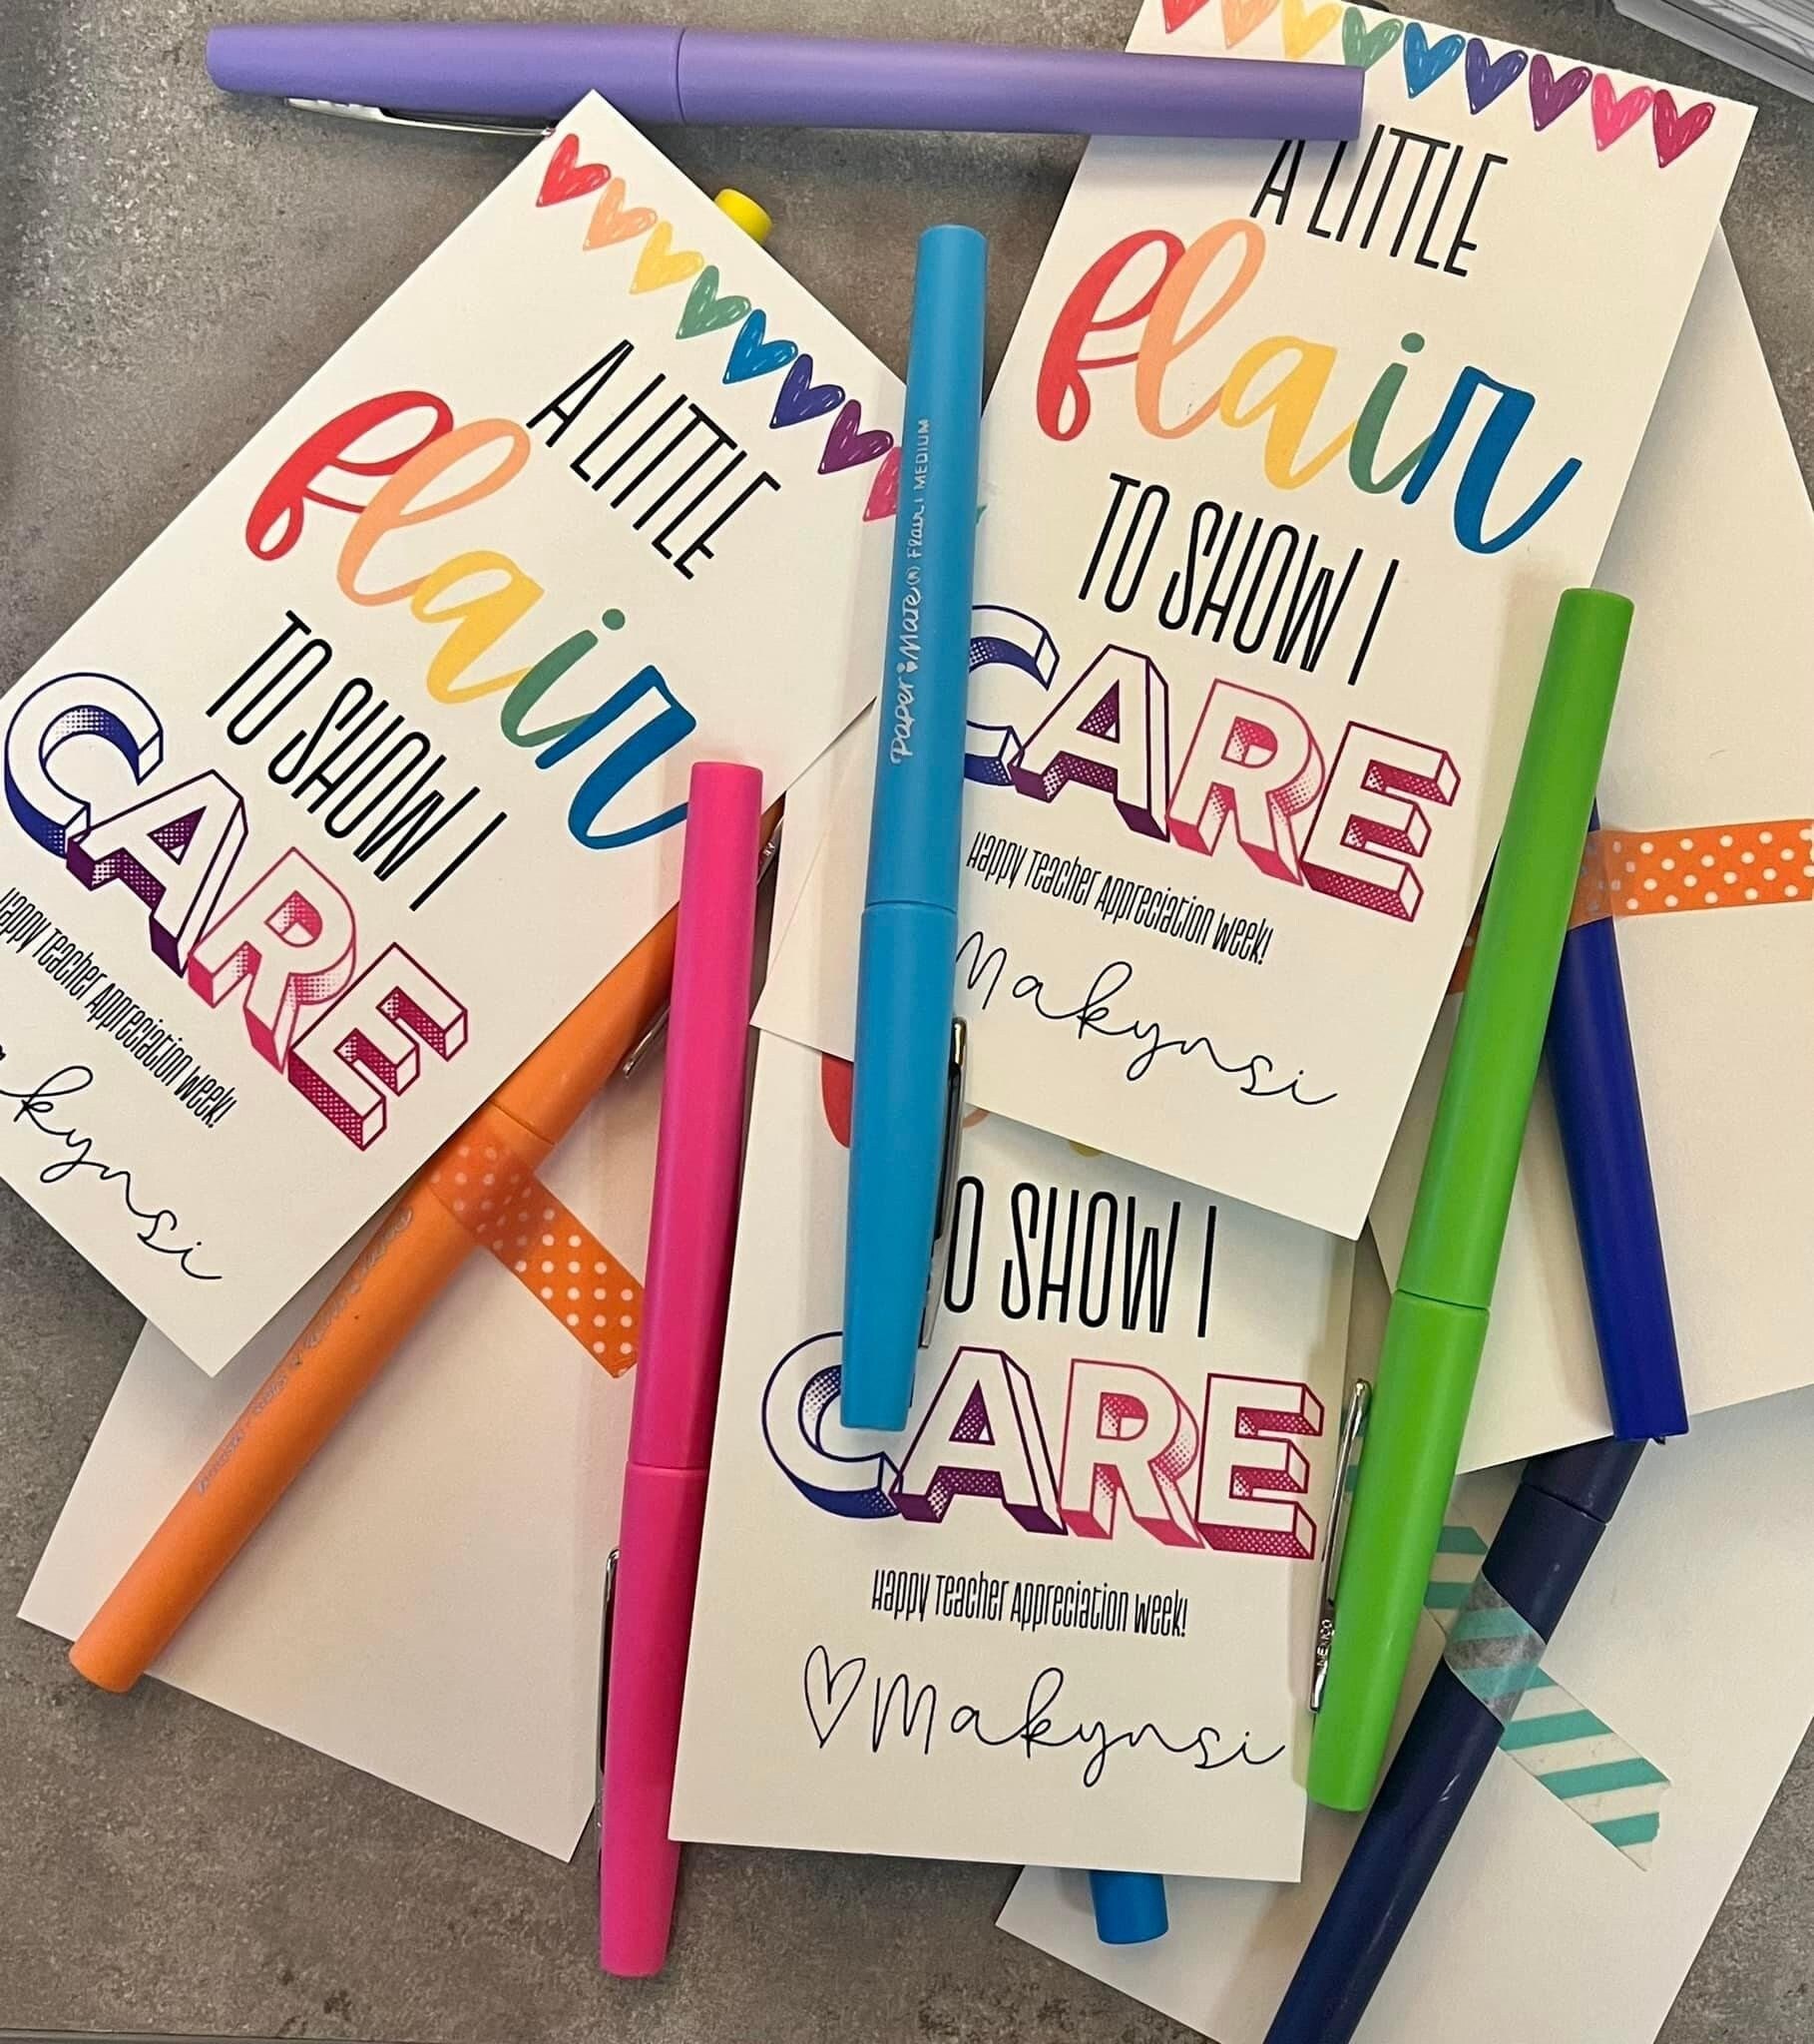 A LITTLE
flair
TO SHOW I
CARE
Happy Teacher Appreciation Week!
A LITTLE
flair
TO SHOW I
CARE
Happy Teacher Appreciation Week!
Makynsi
Paper Mate (R) Flair | MEDIUM
TO SHOW I
CARE
Happy Teacher Appreciation Week!
♡Makynsi